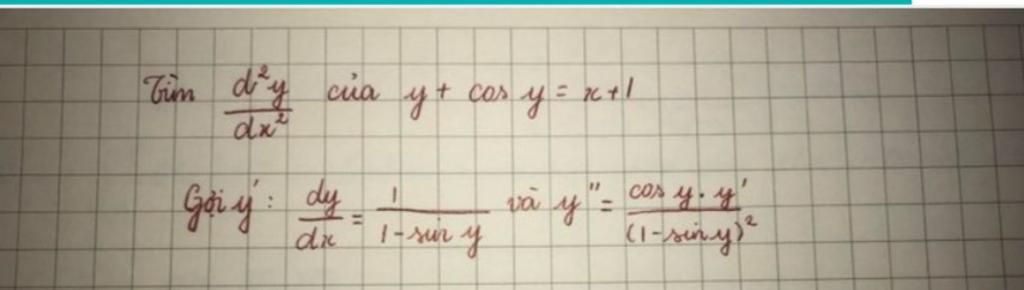 Tìm d²y/dx² của y + cos y = x + 1
Gợi ý: dy/dx = 1/(1 - sin y) và y" = cos y . y'/(1 - sin y)²